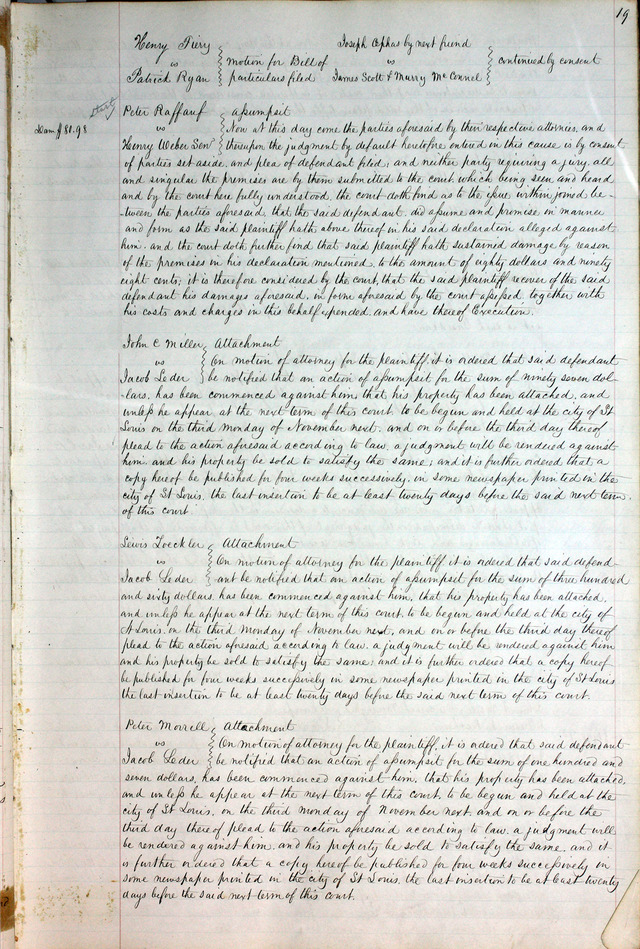 19
Henry Tiery
vs
Patrick Ryan
motion for Bill of
particulars filed
Joseph Cephas by next friend
vs
James Scott & Murry McConnel
continued by consent
Peter Raffauf
vs
Henry Weber Senr
Dam. $80.98
assumpsit
Now at this day come the parties aforesaid by their respective attornies, and
thereupon the judgment by default heretofore ordered in this cause is by consent
of parties set aside, and plea of defendant filed; and neither party requiring a jury, all
and singular the premises are by them submitted to the court, which being seen and heard
and by the court here fully understood, the court doth find as to the issue within joined be-
-tween the parties aforesaid, that the said defendant did assume and promise in manner
and form as the said plaintiff hath above thereof in his said declaration alleged against
him. and the court doth further find that said plaintiff hath sustained damage by reason
of the premises in his declaration mentioned, to the amount of eighty dollars and ninety
eight cents; it is therefore considered by the court, that the said plaintiff recover of the said
defendant his damages aforesaid, in form aforesaid by the court assessed, together with
his costs and charges in this behalf expended, and have thereof Execution.
John C Miller
vs
Jacob Leder
Attachment
On motion of attorney for the plaintiff, it is ordered that said defendant
be notified that an action of assumpsit for the sum of ninety seven dol-
-lars, has been commenced against him, that his property has been attached, and
unless he appear at the next term of this court, to be begun and held at the city of St
Louis on the third monday of November next, and on or before the third day thereof
plead to the action aforesaid according to law, a judgment will be rendered against
him, and his property be sold to satisfy the same; and it is further ordered that a
copy hereof be published for four weeks successively, in some newspaper printed in the
city of St Louis, the last insertion to be at least twenty days before the said next term
of this court
Lewis Zoeckler
vs
Jacob Leder
Attachment
On motion of attorney for the plaintiff it is ordered that said defend-
ant be notified that an action of assumpsit for the sum of three hundred
and sixty dollars, has been commenced against him, that his property has been attached,
and unless he appear at the next term of this court, to be begun and held at the city of
St Louis, on the third Monday of November next, and on or before the third day thereof
plead to the action aforesaid according to law, a judgment will be rendered against him
and his property be sold to satisfy the same; and it is further ordered that a copy hereof
be published for four weeks successively in some newspaper printed in the city of St Louis
the last insertion to be at least twenty days before the said next term of this court.
Peter Morrell
vs
Jacob Leder
Attachment
On motion of attorney for the plaintiff, it is ordered that said defendant
be notified that an action of assumpsit for the sum of one hundred and
seven dollars, has been commenced against him, that his property has been attached,
and unless he appear at the next term of this court, to be begun and held at the
city of St Louis, on the third Monday of November next, and on or before the
third day thereof plead to the action aforesaid according to law, a judgment will
be rendered against him, and his property be sold to satisfy the same, and it
is further ordered that a copy hereof be published for four weeks successively in
some newspaper printed in the city of St Louis, the last insertion to be at least twenty
days before the said next term of this court.